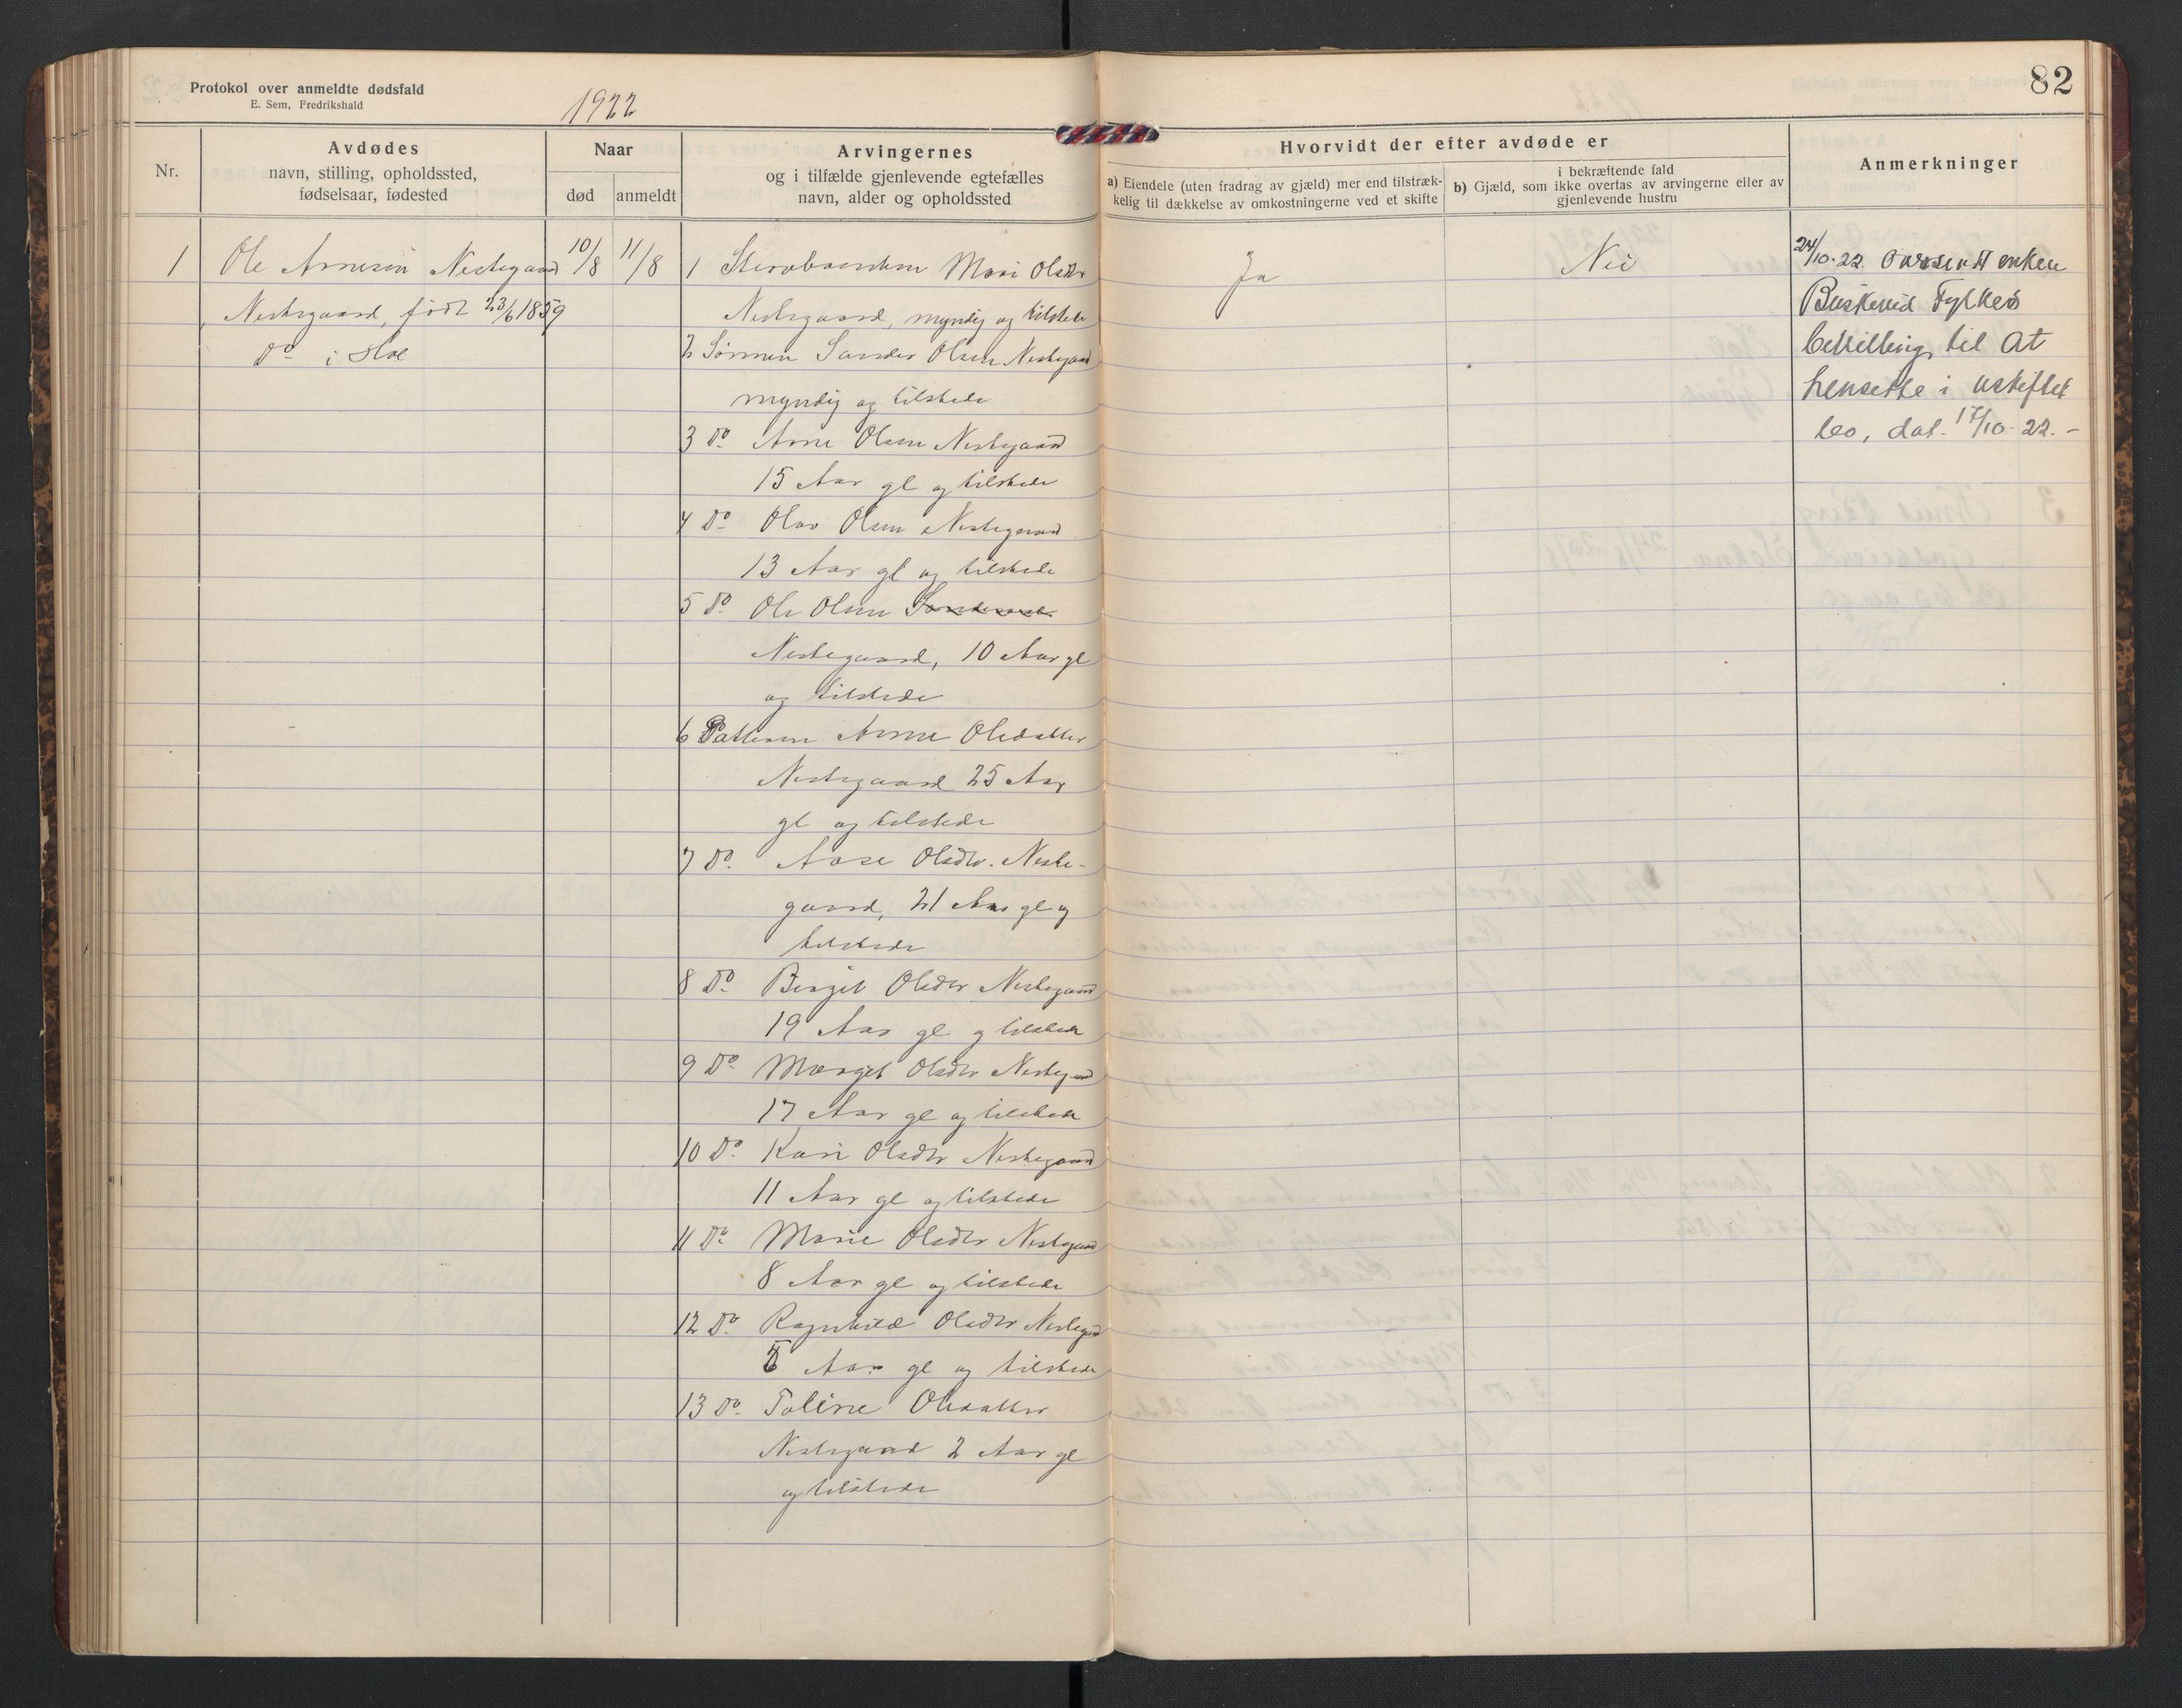 82
Protokol over anmeldte dødsfald
E. Sem, Fredrikshald
1922
Nr.
Avdødes
navn, stilling, opholdssted,
fødselsaar, fødested
Naar
død
anmeldt
Arvingernes
og i tilfælde gjenlevende egtefælles
navn, alder og opholdssted
Hvorvidt der efter avdøde er
a) Eiendele (uten fradrag av gjæld) mer end tilstræk-
kelig til dækkelse av omkostningerne ved et skifte
i bekræftende fald
b) Gjæld, som ikke overtas av arvingerne eller av
gjenlevende hustru
Anmerkninger
1
Ole Arnesen Nestegaard
Nestegaard, født 23/6 1859
Do i Hol
10/8
11/8
1 Mari Olsdtr
Nestegaard, myndig og tilstede
2 Sønnen Sander Olsen Nestegaard
myndig og tilstede
3 Do Arne Olsen Nestegaard
15 Aar gl og tilstede
4 Do Olav Olsen Nestegaard
13 Aar gl og tilstede
5 Do Ole Olsen
Nestegaard, 10 Aar gl
og tilstede
6 Datteren Anne Olsdatter
Nestegaard 25 Aar
gl og tilstede
7 Do Aase Olsdtr. Neste-
gaard, 21 Aar gl og
tilstede
8 Do Birgit Olsdtr Nestegaard
19 Aar gl og tilstede
9 Do Margit Olsdtr Nestegaard
17 Aar gl og tilstede
10 Do Kari Olsdtr Nestegaard
11 Aar gl og tilstede
11 Do Marie Olsdtr Nestegaard
8 Aar gl og tilstede
12 Do Ragnhild Olsdtr Nestegaard
Aar gl og tilstede
13 Do Toline Olsdatter
Nestegaard 2 Aar gl
og tilstede
Ja
Nei
24/10-22. Oversendt enken
Buskerud Fylkes
bevilling til at
hensitte i uskiftet
bo, dat. 17/10-22. -